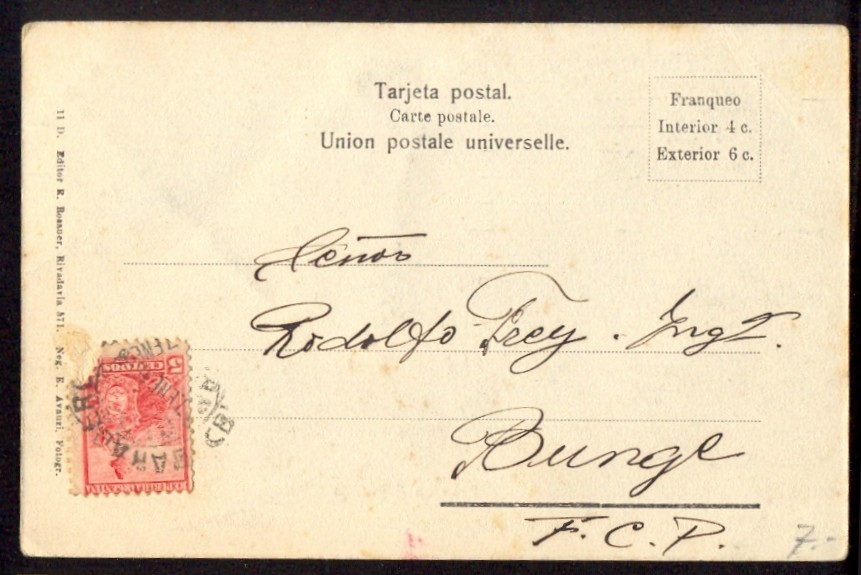 Tarjeta postal.
Carte postale.
Union postale universelle.
Franqueo
Interior 4 c.
Exterior 6 c.
Señor
Rodolfo Frey . Ingr.
Bunge
F. C. P.
7.-
11 D. Editor R. Rosauer, Rivadavia 571. Neg. E. Avanzi, Fotogr.
5
CENTAVOS